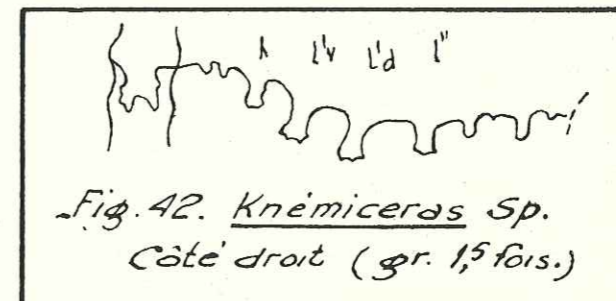 l'v l'd l"
Fig. 42. Knémiceras Sp.
Côté droit (gr. 1,5 fois.)